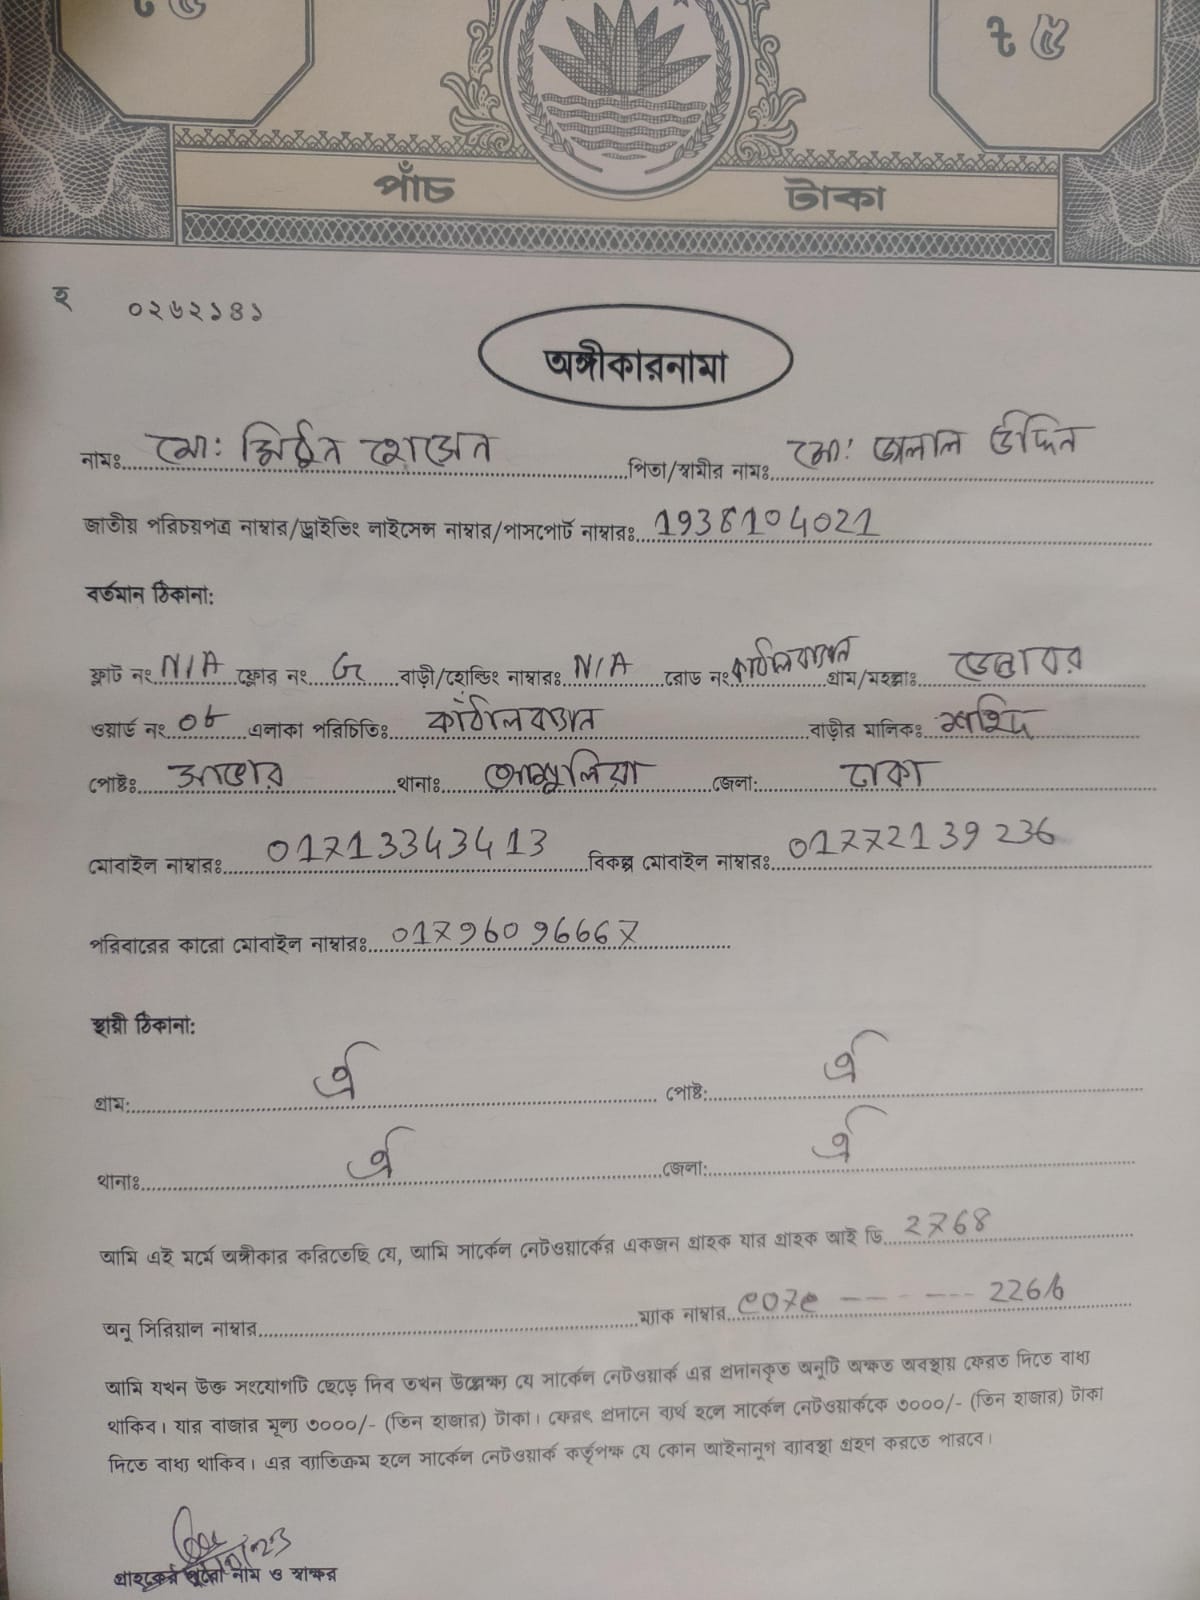 ট ৫ ট ৫
পাঁচ টাকা
হ ০২৬২১৪১
অঙ্গীকারনামা
নামঃ মো: মিঠুন হোসেন পিতা/স্বামীর নামঃ মো: জালাল উদ্দিন
জাতীয় পরিচয়পত্র নাম্বার/ড্রাইভিং লাইসেন্স নাম্বার/পাসপোর্ট নাম্বারঃ 1938104021
বর্তমান ঠিকানা:
ফ্লাট নং N/A ফ্লোর নং G বাড়ী/হোল্ডিং নাম্বারঃ N/A রোড নং কাঠালবাগান গ্রাম/মহল্লাঃ ডেন্ডাবর
ওয়ার্ড নং ০৮ এলাকা পরিচিতিঃ কাঁঠালবাগান বাড়ীর মালিকঃ শহিদ
পোষ্টঃ সাভার থানাঃ আশুলিয়া জেলা: ঢাকা
মোবাইল নাম্বারঃ 01713343413 বিকল্প মোবাইল নাম্বারঃ 01772139236
পরিবারের কারো মোবাইল নাম্বারঃ 01796096667
স্থায়ী ঠিকানা:
গ্রাম: ঐ পোষ্ট: ঐ
থানাঃ ঐ জেলা: ঐ
আমি এই মর্মে অঙ্গীকার করিতেছি যে, আমি সার্কেল নেটওয়ার্কের একজন গ্রাহক যার গ্রাহক আই ডি 2768
অনু সিরিয়াল নাম্বার ম্যাক নাম্বার e07e ------ 2266
আমি যখন উক্ত সংযোগটি ছেড়ে দিব তখন উল্লেক্ষ্য যে সার্কেল নেটওয়ার্ক এর প্রদানকৃত অনুটি অক্ষত অবস্থায় ফেরত দিতে বাধ্য
থাকিব। যার বাজার মূল্য ৩০০০/- (তিন হাজার) টাকা। ফেরৎ প্রদানে ব্যর্থ হলে সার্কেল নেটওয়ার্ককে ৩০০০/- (তিন হাজার) টাকা
দিতে বাধ্য থাকিব। এর ব্যাতিক্রম হলে সার্কেল নেটওয়ার্ক কর্তৃপক্ষ যে কোন আইনানুগ ব্যাবস্থা গ্রহণ করতে পারবে।
গ্রাহকের পুরো নাম ও স্বাক্ষর